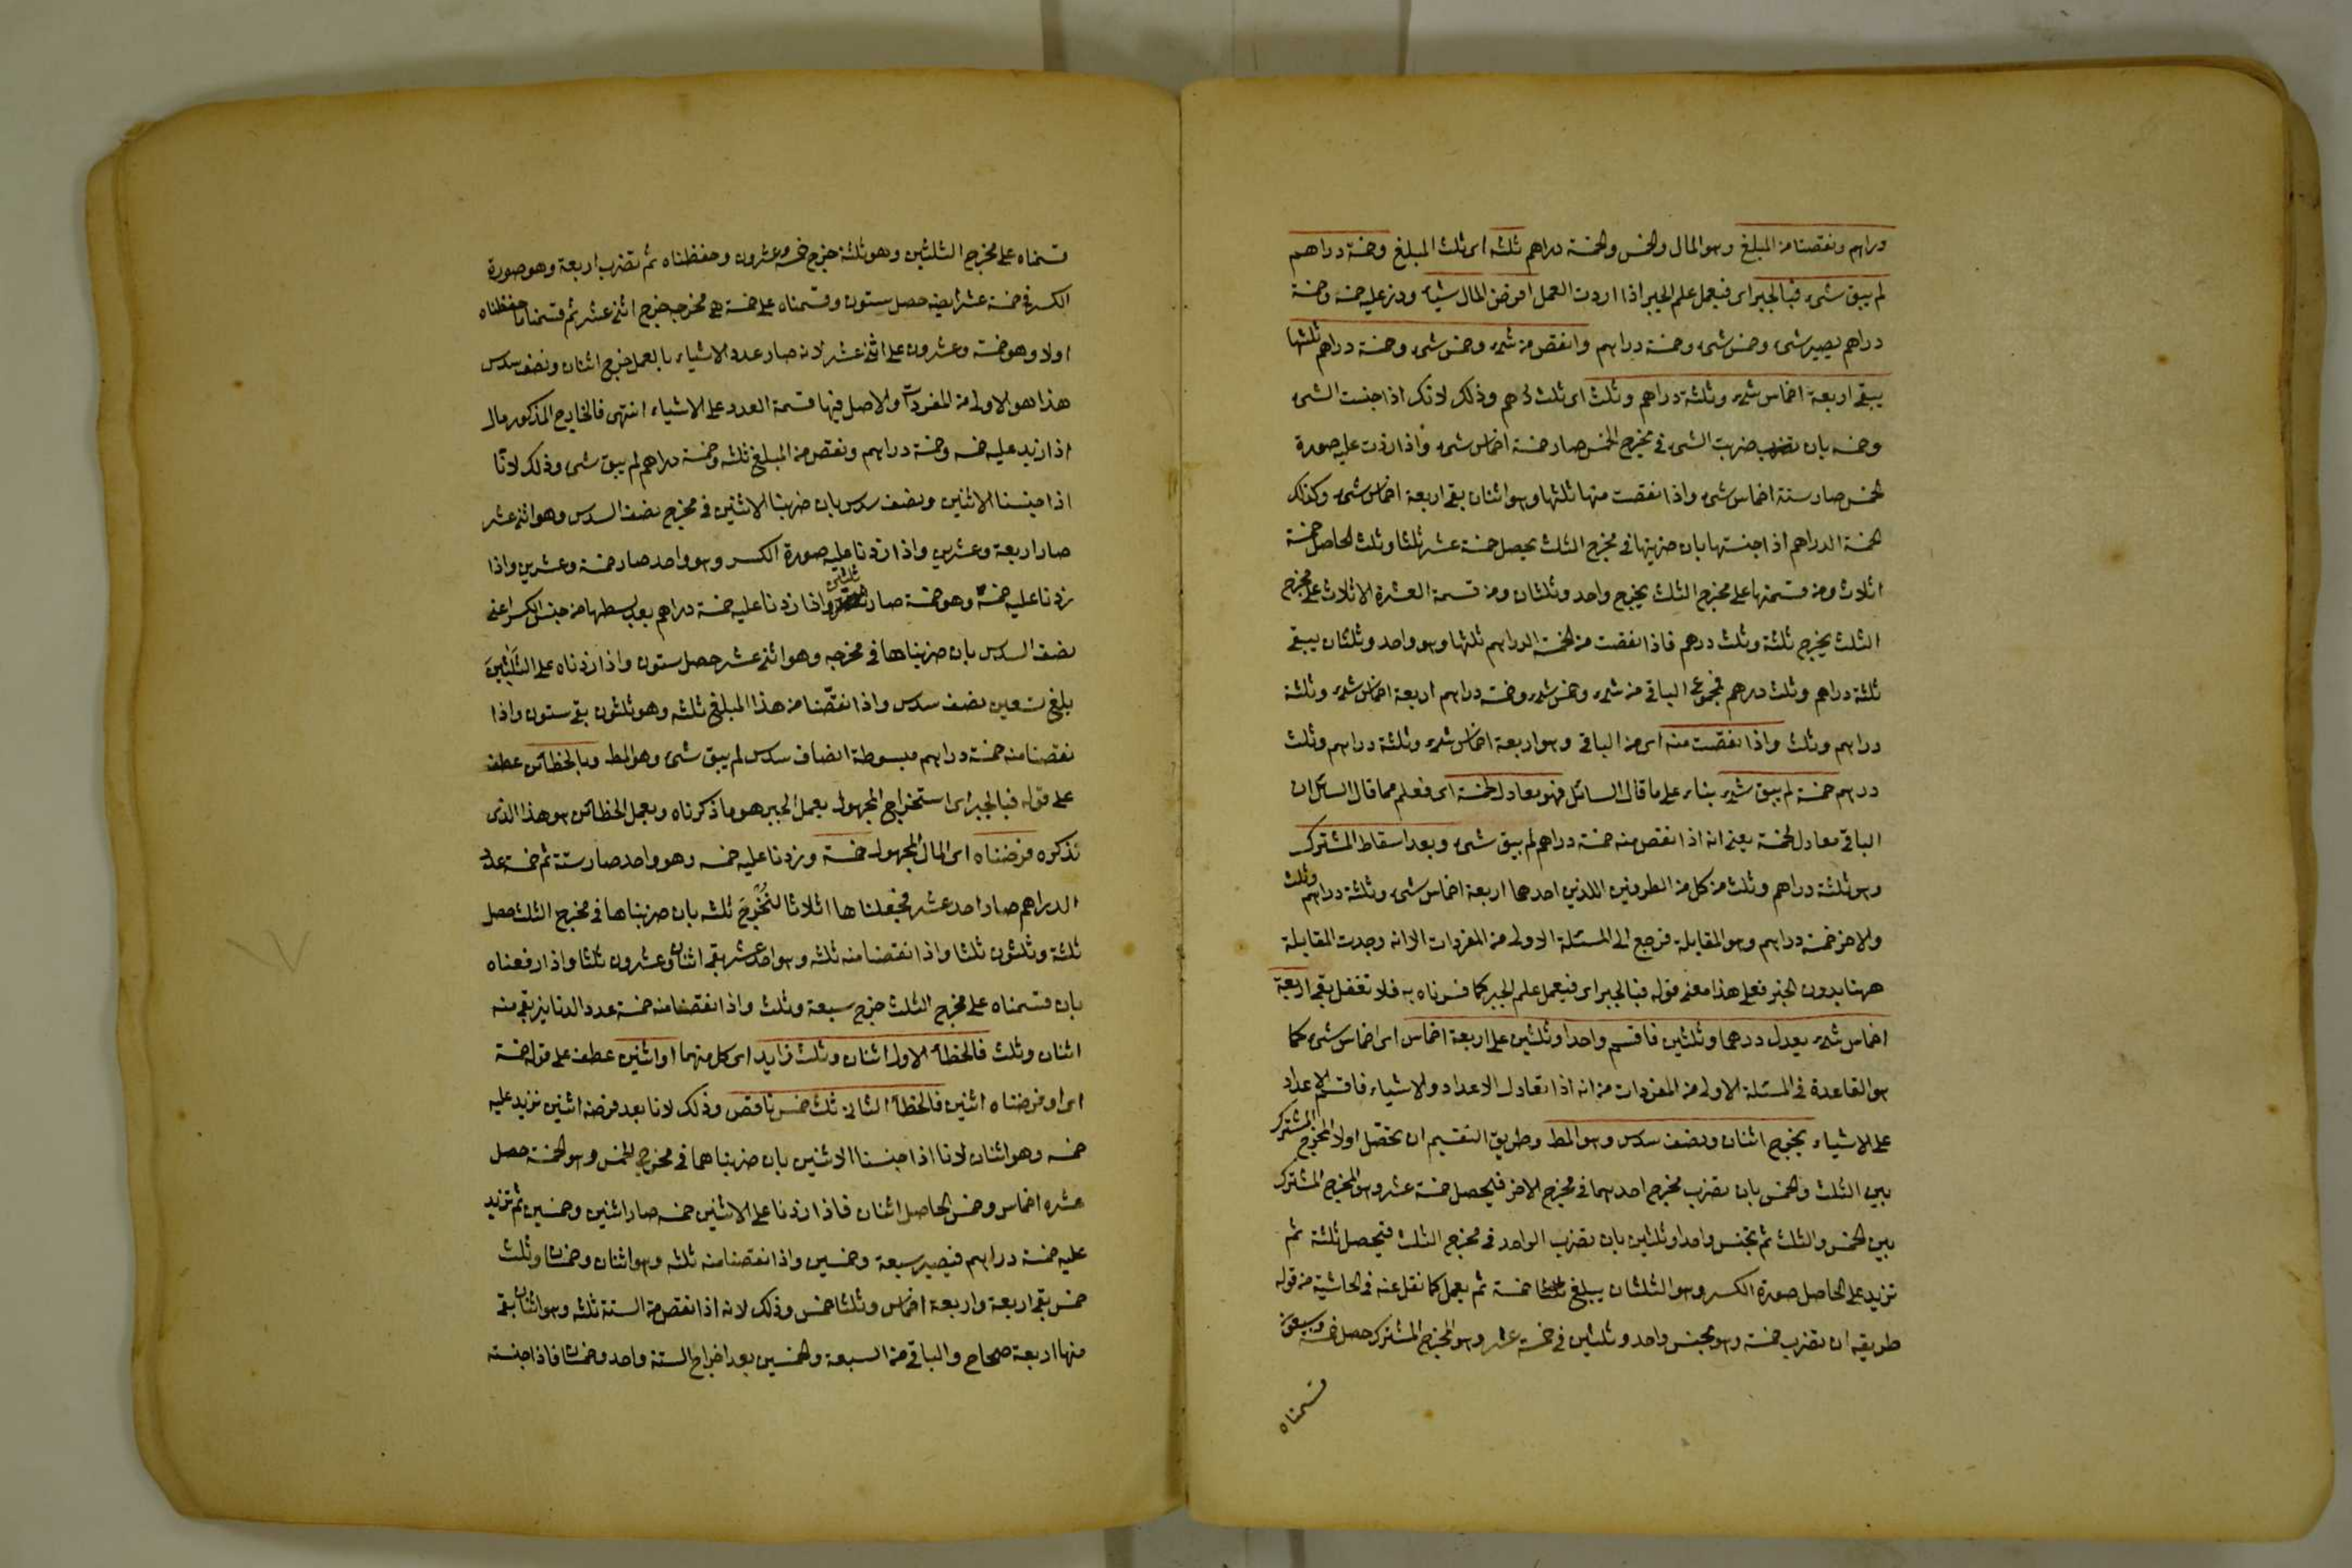 دراهم ونقصنا من المبلغ وهو المال والخمس والخمسة دراهم ثلثه اى ثلث المبلغ وخمسة دراهم
لم يبق شىء فبالجبر اى فبعمل علم الجبر اذا اردت العمل افرض المال شيئا وزد عليه خمسه وخمسة
دراهم يصير شىء وخمس شىء وخمسة دراهم وانقص من شىء وخمس شىء وخمسة دراهم ثلثها
يبقى اربعة اخماس شىء وثلثة دراهم وثلث اى ثلث درهم وذلك لانك اذا جنست الشىء
وخمسه بان ضربت الشىء فى مخرج الخمس صار خمسة اخماس شىء واذا زدت عليه صورة
الخمس صار ستة اخماس شىء واذا نقصت منها ثلثها وهو اثنان بقى اربعة اخماس شىء وكذلك
الخمسة الدراهم اذا جنستها بان ضربتها فى مخرج الثلث يحصل خمسة عشر ثلثا وثلث الحاصل خمسة
اثلاث ومن قسمتها على مخرج الثلث يخرج واحد وثلثان ومن قسمة العشرة الاثلاث على مخرج
الثلث يخرج ثلثة وثلث درهم فاذا نقصت من الخمسة الدراهم ثلثها وهو واحد وثلثان يبقى
ثلثة دراهم وثلث درهم فمجموع الباقى من شىء وخمس شىء وخمسة دراهم اربعة اخماس شىء وثلثة
دراهم وثلث واذا نقصت منه اى من الباقى وهو اربعة اخماس شىء وثلثة دراهم وثلث
درهم خمسة لم يبق شىء بناء على ما قال السائل فهو معادل لخمسة اى فعلم مما قال السائل ان
الباقى معادل لخمسة يعنى انه اذا نقص منه خمسة دراهم لم يبق شىء وبعد اسقاط المشترك
وهو ثلثة دراهم وثلث من كل من الطرفين اللذين احدهما اربعة اخماس شىء وثلثة دراهم وثلث
والاخر خمسة دراهم وهو المقابلة فرجع الى المسئلة الاولى من المفردات الا انه وجدت المقابلة
ههنا بدون الجبر فعلى هذا معنى قوله فبالجبر اى فبعمل علم الجبر كما فسرناه به فلا تغفل بقى اربعة
اخماس شىء يعدل درهما وثلثين فاقسم واحدا وثلثين على اربعة اخماس اى اخماس شىء كما
هو القاعدة فى المسئلة الاولى من المفردات من انه اذا تعادل الاعداد والاشياء فاقسم الاعداد
على الاشياء يخرج اثنان ونصف سدس وهو المط وطريق التقسيم ان تحصل اولا المخرج المشترك
بين الثلث والخمس بان تضرب مخرج احدهما فى مخرج الاخر فيحصل خمسة عشر وهو المخرج المشترك
بين الخمس والثلث ثم تجنس واحدا وثلثين بان تضرب الواحد فى مخرج الثلث فيحصل ثلثة ثم
تزيد على الحاصل صورة الكسر وهو الثلثان يبلغ خمسة ثم يعمل كما نقل عنه فى الحاشية من قوله
طريقه ان تضرب خمسة وهو مجنس واحد وثلثين فى خمسة عشر وهو المخرج المشترك حصل خمسة وسبعون
قسمناه
قسمناه على مخرج الثلثين وهو ثلثة خرج خمسة وعشرون وحفظناه ثم تضرب اربعة وهو صورة
الكسر فى خمسة عشر ايضا حصل ستون وقسمناه على خمسة هى مخرجه خرج اثنى عشر ثم قسمنا ما حفظناه
اولا وهو خمسة وعشرون على اثنى عشر لانه صار عدد الاشياء بالعمل خرج اثنان ونصف سدس
هذا هو الاولى من المفردات والاصل فيها قسمة العدد على الاشياء انتهى فالخارج المذكور مال
اذا زيد عليه خمسه وخمسة دراهم ونقص من المبلغ ثلثه وخمسة دراهم لم يبق شىء وذلك لانا
اذا جنسنا الاثنين ونصف سدس بان ضربنا الاثنين فى مخرج نصف السدس وهو اثنى عشر
صار اربعة وعشرين واذا زدنا عليه صورة الكسر وهو واحد صار خمسة وعشرين واذا
زدنا عليه خمسه وهو خمسة صار ثلثين واذا زدنا عليه خمسة دراهم بعد بسطها من جنس الكسر اعنى
نصف السدس بان ضربناها فى مخرجه وهو اثنى عشر حصل ستون واذا زدناه على الثلثين
بلغ تسعين نصف سدس واذا نقصنا من هذا المبلغ ثلثه وهو ثلثون بقى ستون واذا
نقصنا منه خمسة دراهم مبسوطة انصاف سدس لم يبق شىء وهو المط وبالخطائين عطف
على قوله فبالجبر اى استخراج المجهول بعمل الجبر هو ما ذكرناه وبعمل الخطائين هو هذا الذى
نذكره فرضناه اى المال المجهول خمسة وزدنا عليه خمسه وهو واحد صار ستة ثم خمسة عدد
الدراهم صار احد عشر فجعلناها اثلاثا لتخرج ثلثه بان ضربناها فى مخرج الثلث حصل
ثلثة وثلثون ثلثا واذا نقصنا منه ثلثه وهو احد عشر بقى اثنان وعشرون ثلثا واذا رفعناه
بان قسمناه على مخرج الثلث خرج سبعة وثلث واذا نقصنا منه خمسة عدد الدنانير بقى منه
اثنان وثلث فالخطأ الاول اثنان وثلث زايد اى كل منهما او اثنين عطف على قوله خمسة
اى او فرضناه اثنين فالخطأ الثانى ثلث خمس ناقص وذلك لانا بعد فرضه اثنين نزيد عليه
خمسه وهو اثنان لانا اذا جنسنا الاثنين بان ضربناهما فى مخرج الخمس وهو الخمسة حصل
عشرة اخماس وخمس الحاصل اثنان فاذا زدنا على الاثنين خمسه صار اثنين وخمسين ثم نزيد
عليه خمسة دراهم فيصير سبعة وخمسين واذا نقصنا منه ثلثه وهو اثنان وخمسان وثلث
خمس بقى اربعة واربعة اخماس وثلثا خمس وذلك لانه اذا نقص من الستة ثلثه وهو اثنان بقى
منها اربعة صحاح والباقى من السبعة والخمسين بعد اخراج الستة واحد وخمسان فاذا جنسته